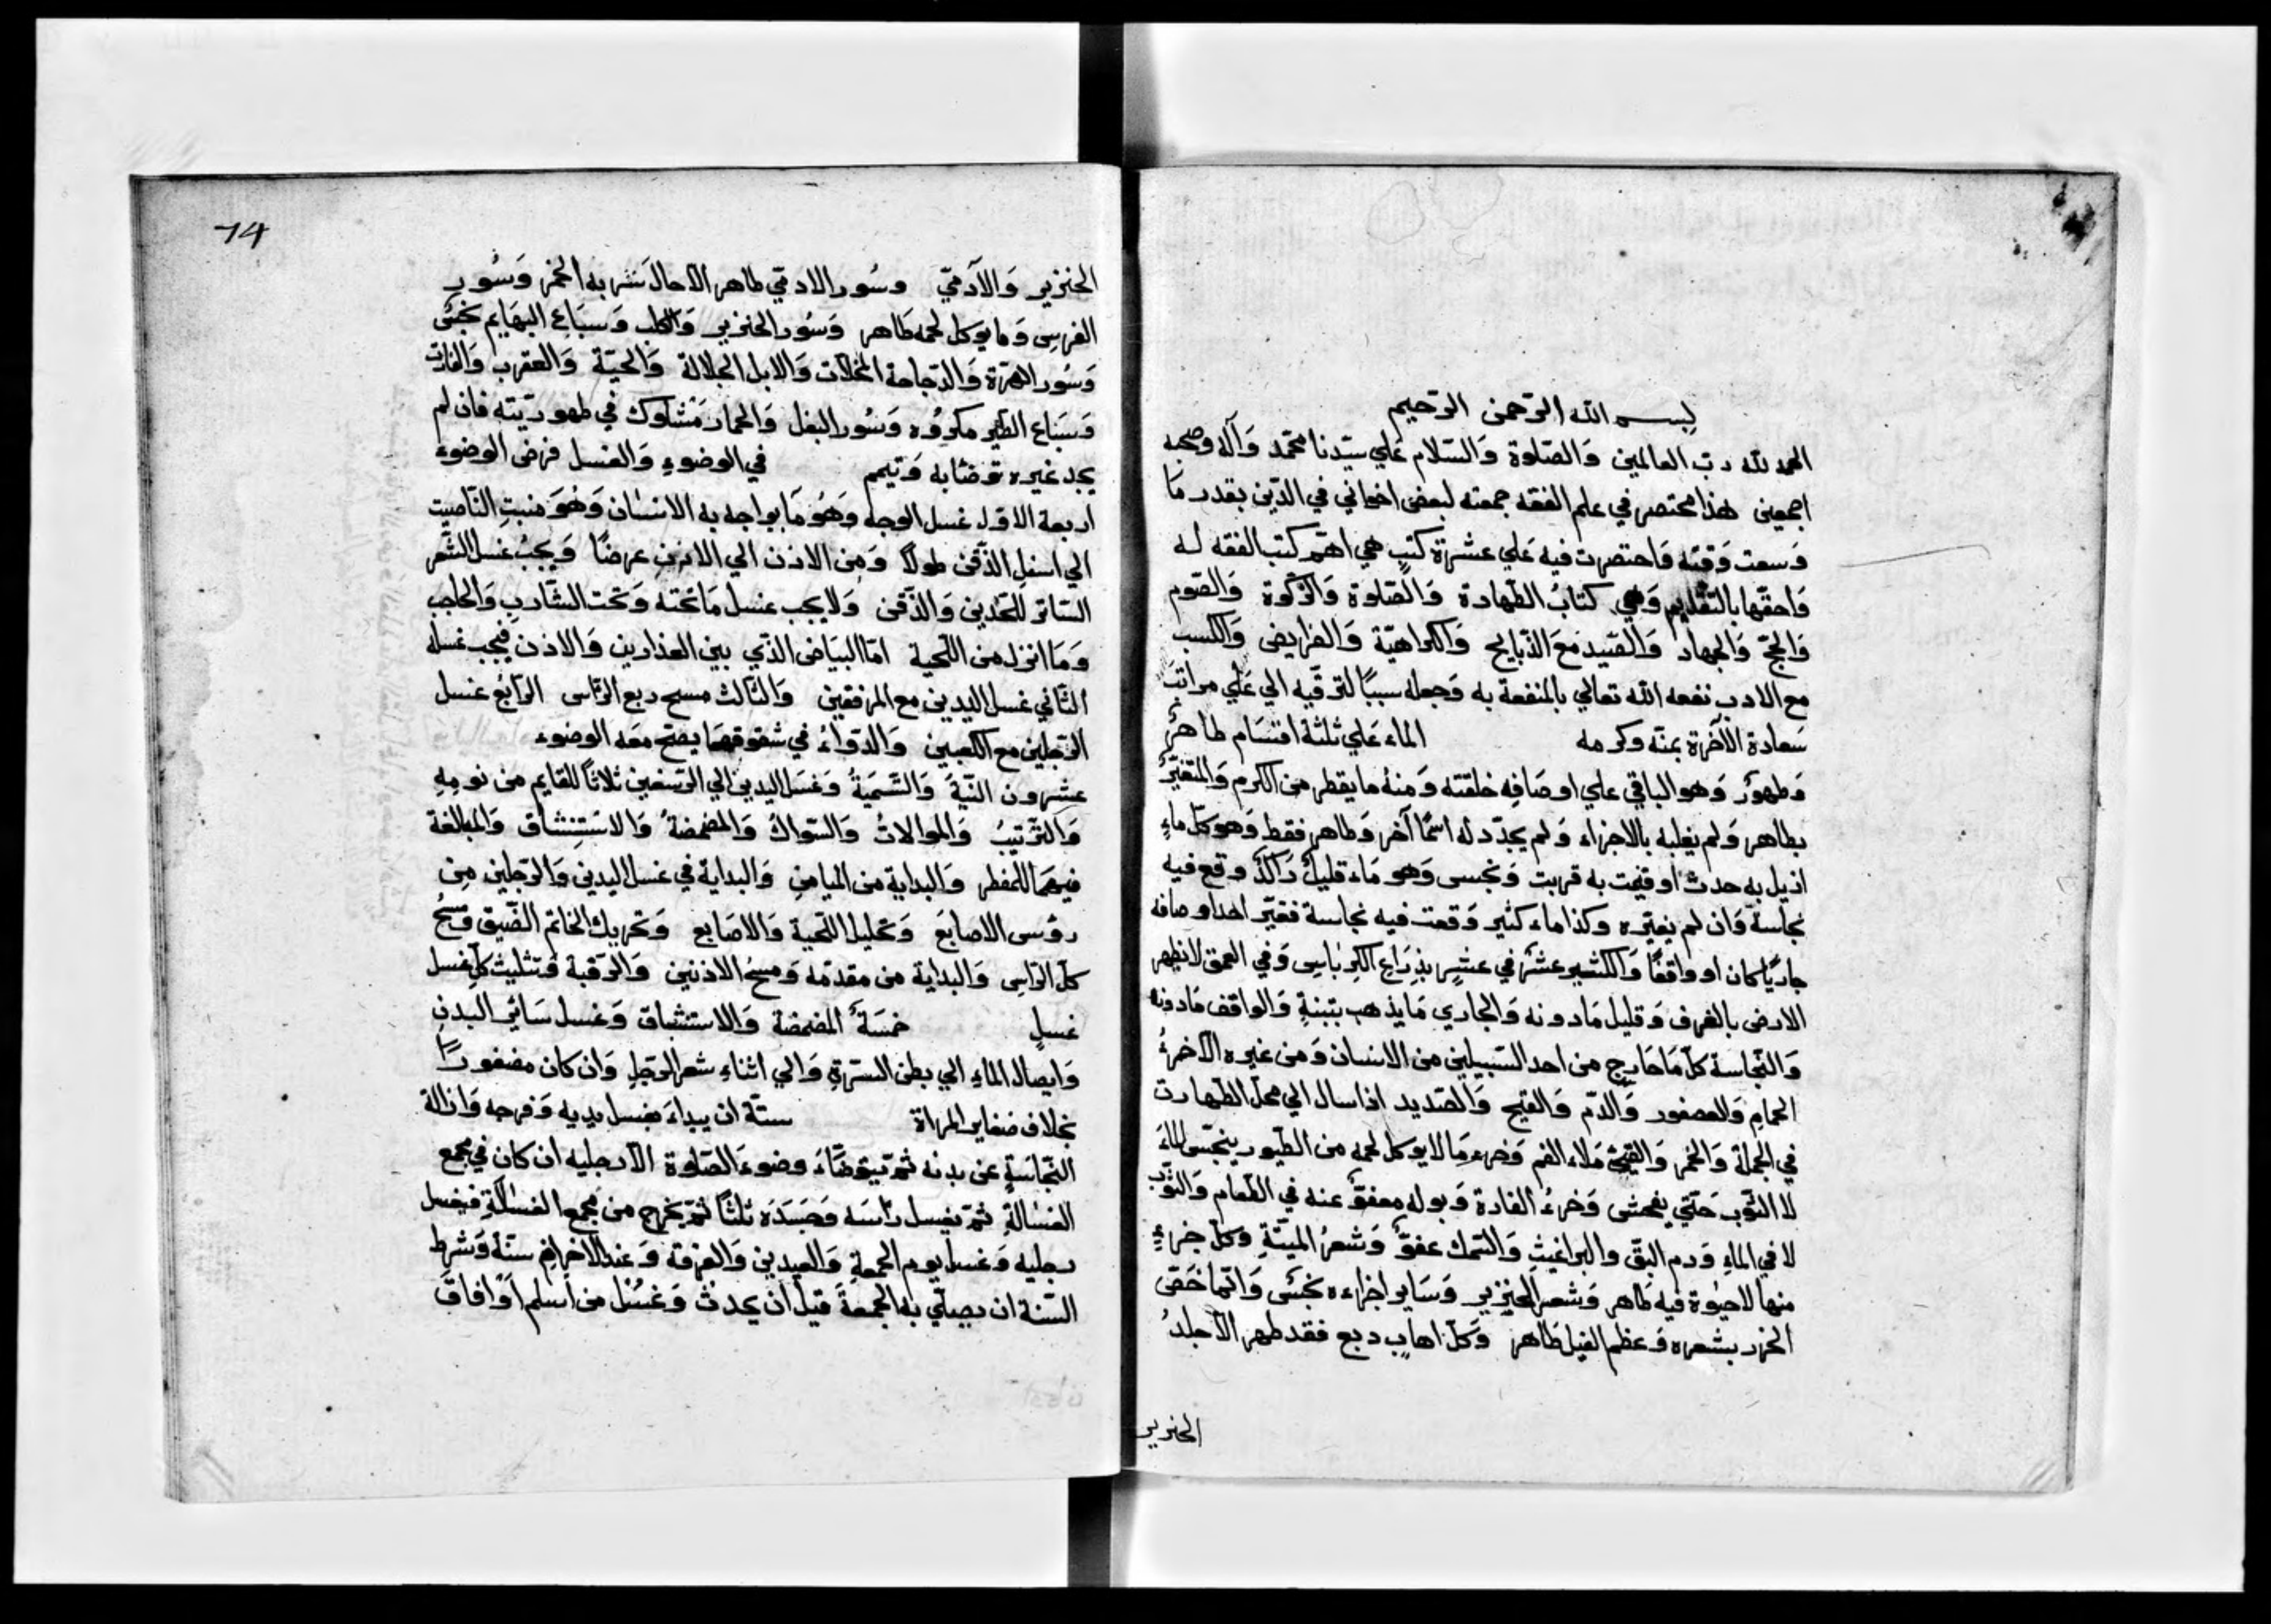 بسم الله الرّحمن الرّحيم
الحمد لله ربّ العالمين وَالصّلوة وَالسّلام عَلي سيّدنا محمّد وَآله وصحبه
اجمعين هذا مختصر في علم الفقه جمعته لبعض اخواني في الدّين بقدر مَا
وَسعت وَقته وَاختصرت فيه عَلي عشرة كتبٍ هي اهمّ كتب الفقه له
وَاحقّها بالتقديم وَهي كتابُ الطّهارة وَالصّلوة وَالزّكوة وَالصّوم
وَالحجّ وَالجهاد وَالصّيد مَعَ الذّبايح وَالكراهيّة وَالفرايض وَالكسب
مع الادب نفعه الله تعالي بالمنفعة به وَجعله سببًا لترقّيه الي عَلي مراتب
سَعادة الآخرة بمنّه وكرمه الماء عَلي ثلثة اقسَام طاهرٌ
وَطهورٌ وَهو الباقي علي اوصَافِه خلقته وَمنهُ ما يقطر من الكرم وَالمتغيّرُ
بطاهر وَلم يغلبه بالاجزاء وَلم يجدّد له اسمًا آخر وَطاهر فقط وَهو كلّ ماءٍ
ازيل به حدث اَو قيمت به قربت وَنجس وَهو مَاء قليلٌ رَاكدٌ وقع فيه
نجاسة وَان لم يغيّره وكذا ماء كثير وَقعت فيه نجاسة فغيّر احد اوصافه
جاريًا كان او واقفًا وَالكثير عشرٌ في عشرٍ بذِرَاع الكرباس وَفي العمق لا تظهر
الارض بالغرف وَقليل مَادونه وَالجاري مَا يذهب بتبنةٍ وَالواقف مَادونه
وَالنّجاسة كلّ مَا خَارج من احد السّبيلين من الانسان وَمن غيره الّا خرءُ
الحمامِ وَالعصفور وَالدّم وَالقيح وَالصّديد اذا سال الي محلّ الطّهارت
في الجملة وَالخمر وَالقيئ مَلاء الفم وَخرء مَا لا يوكل لحمه من الطّيور ينجّس الماءَ
لا الثّوب حَتّي يفحش وَخرءُ الفارة وَبوله معفوّ عنه في الطّعام وَالثّوب
لا في الماءِ وَدم البقّ والبراغيثِ وَالسّمك عفوٌّ وَشعرُ الميتّةِ وكلّ جزءٍ
منها لا حيوة فيه طَاهر وَشعر الخنزير وَسَاير اجزاءه نجسٌ وَانّما خَصّ
الخرز بشعره وَعظم الفيل طَاهر وَكلّ اهابٍ دبغ فقد طهر الّا جلدُ
الخنزير
14
الخنزير وَالآدميّ وسُور الادميّ طاهر الّا حالَ شربه الخمر وَسُور
الفرسِ وَما يوكل لحمه طَاهر وَسُور الخنزير وَالكلب وَسبَاعِ البهَايم نجسٌ
وَسُور الهرّة وَالدّجاجة المخلّات وَالابل الجلالة وَالحيّة وَالعقرب وَالفارت
وَسبَاع الطّير مكروُه وَسُور البغل وَالحمار مَشكوك في طهوريّته فان لم
يجد غيره توضّا به وَتيمم في الوضوءِ وَالغسل فرض الوضوء
اربعة الاوّل غسل الوجه وَهُو مَا يواجه به الانسَان وَهُوَ منبت النّاصيت
الي اسفل الذّقن طولاً وَمِن الاذن الي الاذن عرضًا وَيجبُ غسل الشّعر
السّاتر للخدّين وَالذّقن وَلا يجب غسل مَا تحته وَتحت الشّاربِ وَالحاجب
وَمَا انزل من اللّحية امّا البيَاض الذّي بين العذارين وَالاذن فيجب غسله
الثّاني غسل اليدين مع المرفقين وَالثّالث مسح ربع الرّاس الرّابعُ غسل
الرّجلين مع الكعبين وَالدّواءُ في شقوقهمَا يصحّ معَه الوضوء
عشرون النيّةَ وَالتّسميَةُ وَغسَل اليدين الي الرّسغين ثلاثًا للقايم من نومهِ
وَالترّتيبُ وَالموالاتُ وَالسّواكُ وَالمضمضةُ وَالاستنِشاق وَالمبالغة
فيهمَا للمفطر وَالبداية من الميامن وَالبداية في غسل اليدين وَالرّجلين مِن
رؤس الاصابَع وَتخليل اللّحية وَالاصَابع وَتحريك الخاتم الضّيق وَمسحُ
كلّ الرّاسِ وَالبداية من مقدّمه وَمسحُ الاذنين وَالرّقبة وَتثليث كلّ غسل
غسلٍ خمسَةٌ المضمضة وَالاستنشاق وَغسل سَائر البدنِ
وَايصال الماءِ الي بطن السّرةِ وَالي اثناءِ شعر الرّجلِ وَان كان مضفورًا
بخلاف ضفاير المراة ستّة ان يبداءَ بغسل يديه وَفرجه وَازالة
النّجاسَةِ عن بدنه ثمّ يتوضّاءَ وضوءَ الصّلوة الّا رجليه ان كان في مجمع
الغسالةِ ثمّ يغسل رأسَه وَجَسَدَه ثلثًا ثمّ يخرج من مجمع الغسالةِ فيغسل
رجليه وَغسل يوم الجمعةِ وَالعيدين وَالعرفة وَعند الاحرامِ سنّة وَشرط
السّنة ان يصلّي به الجمعةَ قبل اَن يحدث وَغسُل من اَسلم اَو افاقَ